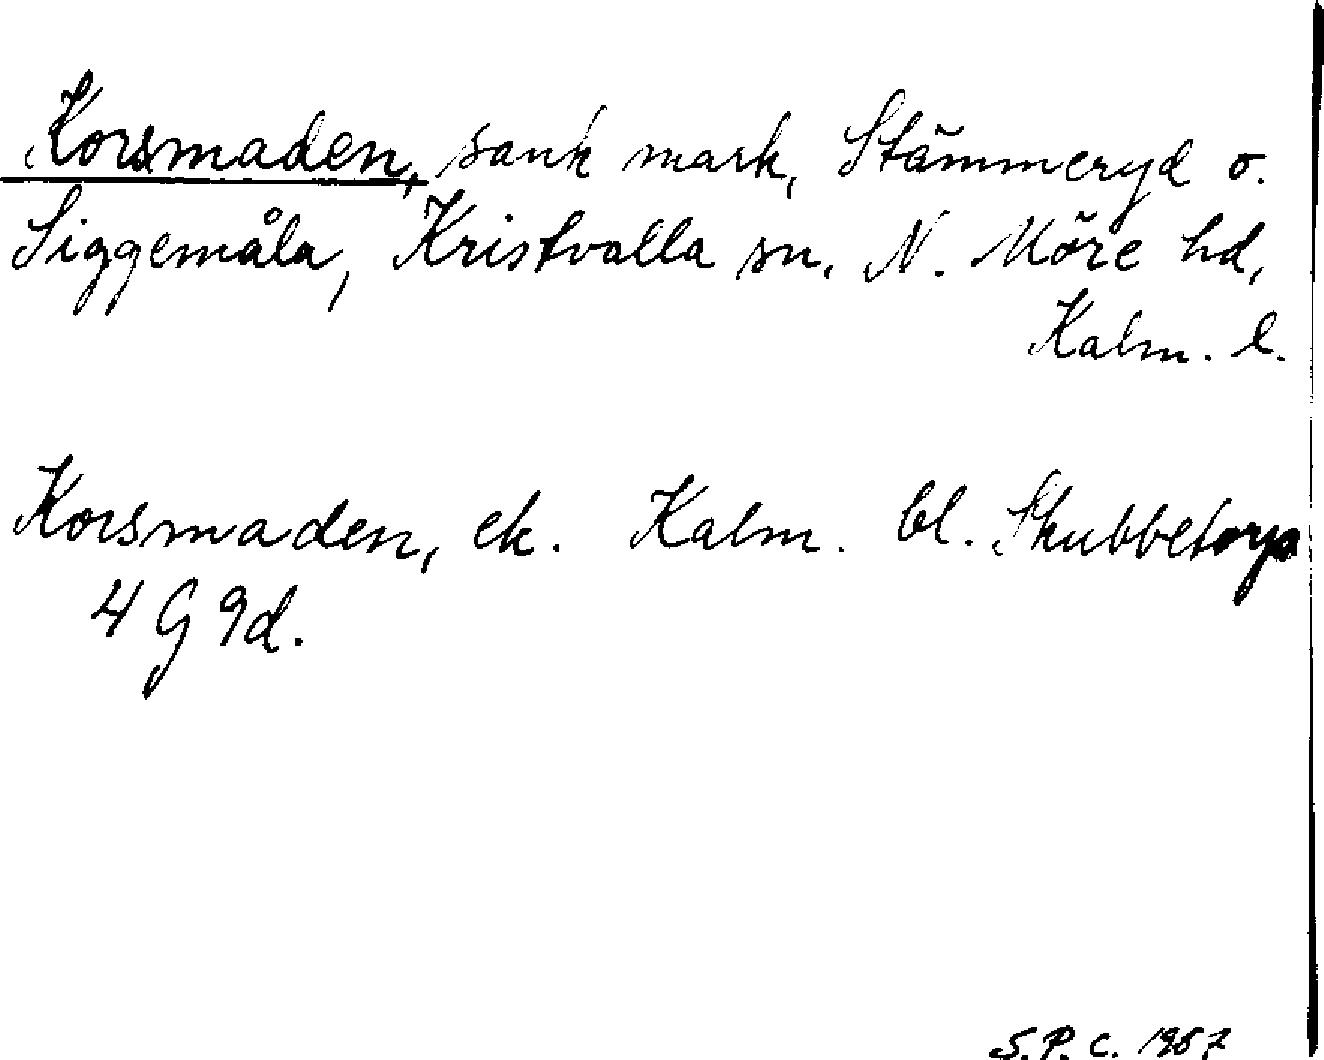 Korsmaden, sank mark, Stämmeryd o.
Siggemåla, Kristvalla sn. N. Möre hd,
Kalm. l.
Korsmaden, ek. Kalm. bl. Skubbetorp
4 G 9d.
S.P.C. 1957